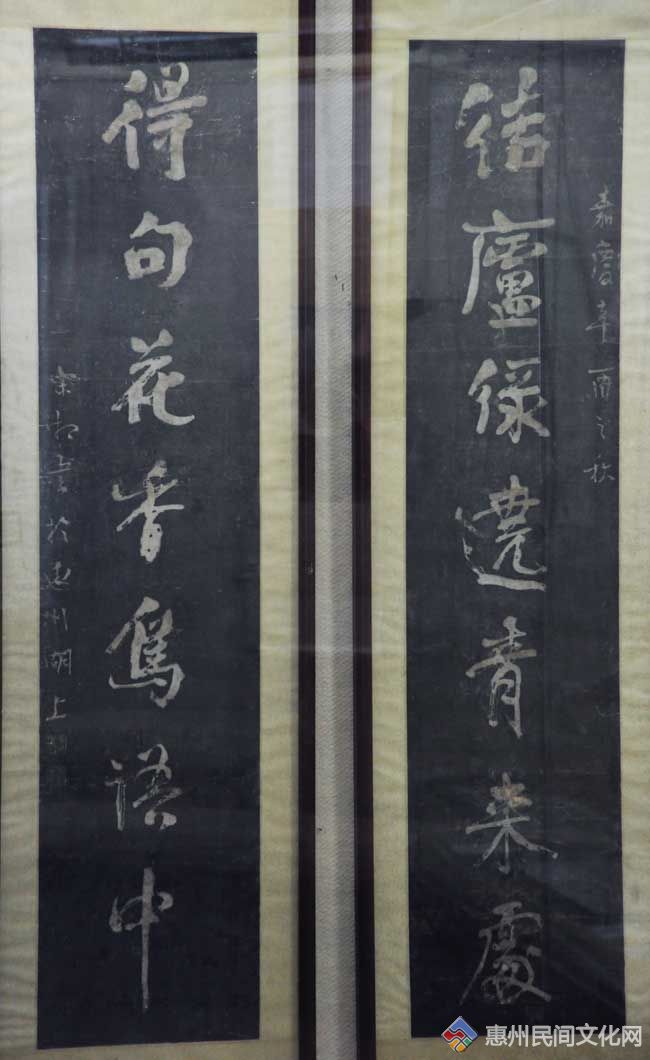 嘉慶辛酉之秋
結廬綠遶青来處
得句花香鳥語中
宋湘書於惠州湖上
惠州民间文化网